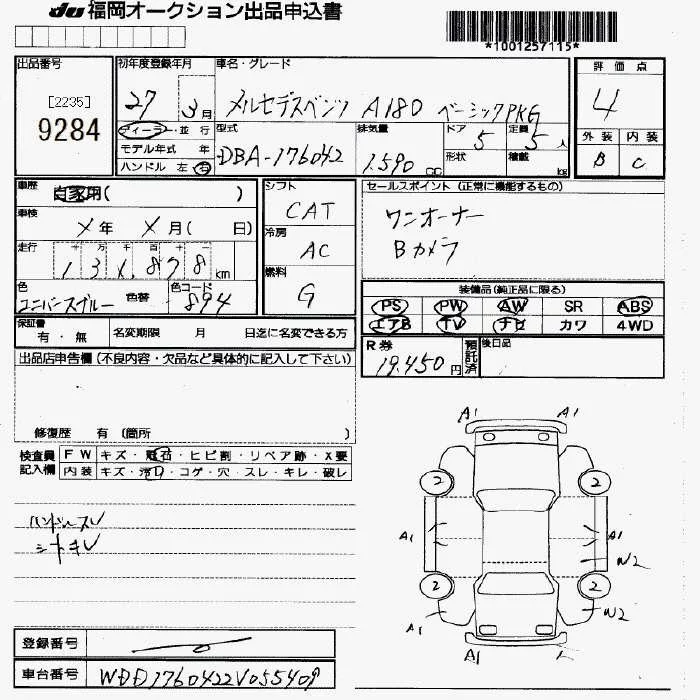 du 福岡オークション出品申込書
*1001257115*
出品番号
[2235]
9284
初年度登録年月
27 3月
車名・グレード
メルセデスベンツ A180 ベーシックPKG
評価点
4
外装 内装
B C
ディーラー・並行
モデル年式 年
ハンドル 左 右
型式
DBA-176042
排気量
1.590 CC
ドア
5
形状
定員
5人
積載
kg
車歴
自家用( )
車検
X年 X月( 日)
走行
十 万 千 百 十 一
131,878 km
色
ユニバースブルー
色替
色コード
894
シフト
CAT
冷房
AC
燃料
G
セールスポイント (正常に機能するもの)
ワンオーナー
Bカメラ
装備品(純正品に限る)
PS PW AW SR ABS
エアB TV ナビ カワ 4WD
保証書
有・無
名変期限 月 日迄に名変できる方
R券
19,450円
預託済
後日品
出品店申告欄 (不良内容・欠品など具体的に記入して下さい)
修復歴 有 (箇所 )
検査員
記入欄
FW キズ・飛石・ヒビ割・リペア跡・X要
内装 キズ・汚れ・コゲ・穴・スレ・キレ・破レ
ハンドルスレ
A1 A1
2 2
A1 A1
W2
2 2
A1 W2
A1 A1
登録番号
車台番号
WDD1760422V055409